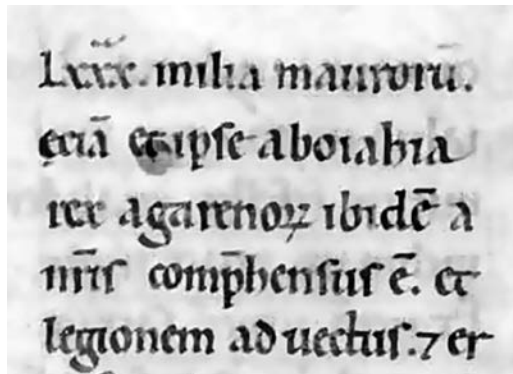 Lxxx. milia mauroꝝ ū.
eciā et ipse aboiahia
rex agarenoꝝ ibidē a
nr̄is comp̄hensus ē. et
legionem aduectus.⁊ er